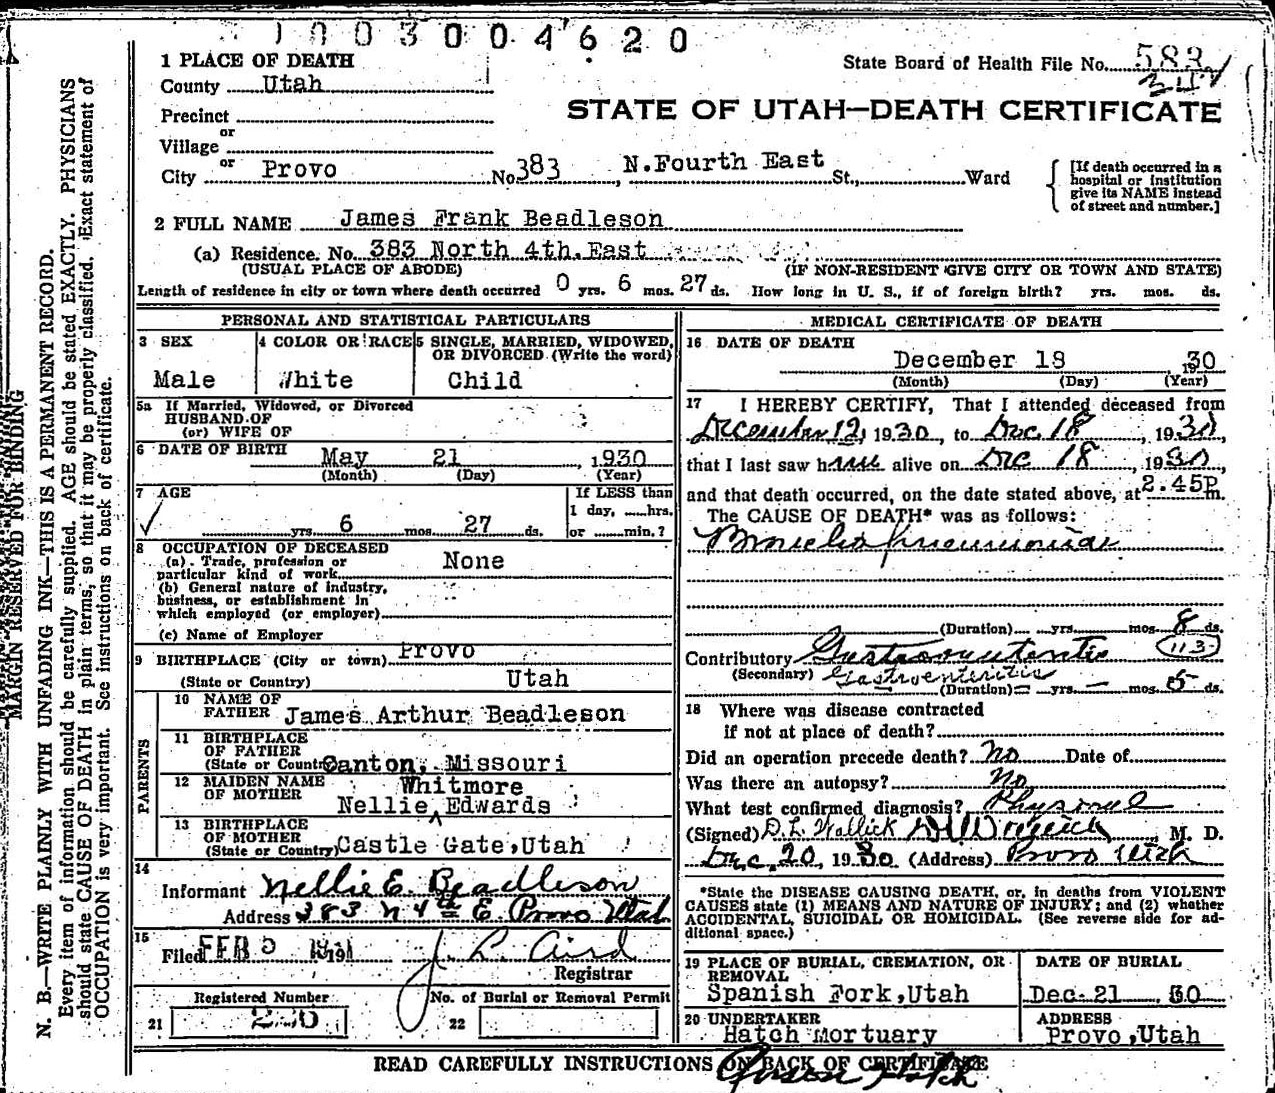 1003004620
1 PLACE OF DEATH
State Board of Health File No. 583
347
County Utah
STATE OF UTAH—DEATH CERTIFICATE
Precinct
or
Village
or
City Provo No 383, N.Fourth East St., Ward
[If death occurred in a
hospital or institution
give its NAME instead
of street and number.]
2 FULL NAME James Frank Beadleson
(a) Residence. No. 383 North 4th.East
(USUAL PLACE OF ABODE) (IF NON-RESIDENT GIVE CITY OR TOWN AND STATE)
Length of residence in city or town where death occurred 0 yrs. 6 mos. 27 ds. How long in U. S., if of foreign birth? yrs. mos. ds.
PERSONAL AND STATISTICAL PARTICULARS
3 SEX
Male
4 COLOR OR RACE
White
5 SINGLE, MARRIED, WIDOWED,
OR DIVORCED (Write the word)
Child
5a If Married, Widowed, or Divorced
HUSBAND OF
(or) WIFE OF
6 DATE OF BIRTH
May 21, 1930
(Month) (Day) (Year)
7 AGE
yrs 6 mos. 27 ds.
If LESS than
1 day, ......hrs.
or ......min.?
8 OCCUPATION OF DECEASED
(a) Trade, profession or
particular kind of work None
(b) General nature of industry,
business, or establishment in
which employed (or employer)
(c) Name of Employer
9 BIRTHPLACE (City or town) Provo
(State or Country) Utah
PARENTS
10 NAME OF
FATHER James Arthur Beadleson
11 BIRTHPLACE
OF FATHER
(State or Country) Canton, Missouri
12 MAIDEN NAME
OF MOTHER
Whitmore
Nellie Edwards
13 BIRTHPLACE
OF MOTHER
(State or Country) Castle Gate,Utah
14
Informant Nellie E. Beadleson
Address 383 N 4th E. Provo Utah
15
Filed FEB 5 1931 J. L. Aird
Registrar
Registered Number
21
No. of Burial or Removal Permit
22
MEDICAL CERTIFICATE OF DEATH
16 DATE OF DEATH
December 18 1930
(Month) (Day) (Year)
17 I HEREBY CERTIFY, That I attended deceased from
December 12, 1930, to Dec 18, 1930,
that I last saw him alive on Dec 18, 1930,
and that death occurred, on the date stated above, at 2.45P m.
The CAUSE OF DEATH* was as follows:
Broncho pneumonia
(Duration) yrs. mos. 8 ds.
Contributory Gastroenteritis 113
(Secondary) Gastroenteritis
(Duration) — yrs. — mos. 5 ds.
18 Where was disease contracted
if not at place of death?
Did an operation precede death? No Date of
Was there an autopsy? No
What test confirmed diagnosis? Physical
(Signed) , M. D.
Dec. 20, 1930 (Address) Provo Utah
*State the DISEASE CAUSING DEATH, or, in deaths from VIOLENT
CAUSES state (1) MEANS AND NATURE OF INJURY; and (2) whether
ACCIDENTAL, SUICIDAL OR HOMICIDAL. (See reverse side for ad-
ditional space.)
19 PLACE OF BURIAL, CREMATION, OR
REMOVAL
Spanish Fork,Utah
DATE OF BURIAL
Dec. 21, 30
20 UNDERTAKER
Hatch Mortuary
ADDRESS
Provo,Utah
READ CAREFULLY INSTRUCTIONS ON BACK OF CERTIFICATE
MARGIN RESERVED FOR BINDING
N. B.—WRITE PLAINLY WITH UNFADING INK—THIS IS A PERMANENT RECORD.
Every item of information should be carefully supplied. AGE should be stated EXACTLY. PHYSICIANS
should state CAUSE OF DEATH in plain terms, so that it may be properly classified. Exact statement of
OCCUPATION is very important. See instructions on back of certificate.